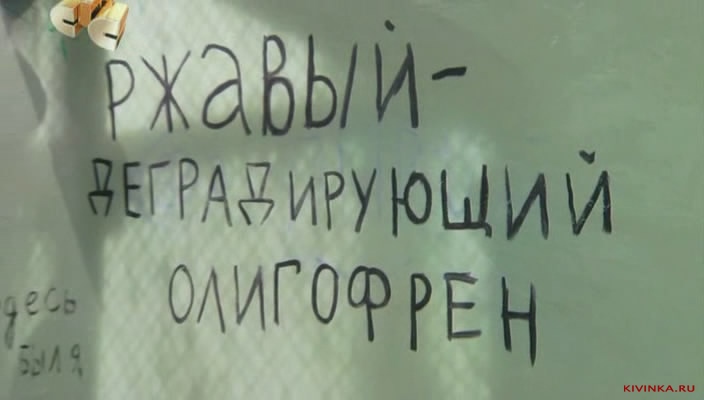 ржавый-
деградирующий
олигофрен
здесь
был я
KIVINKA.RU